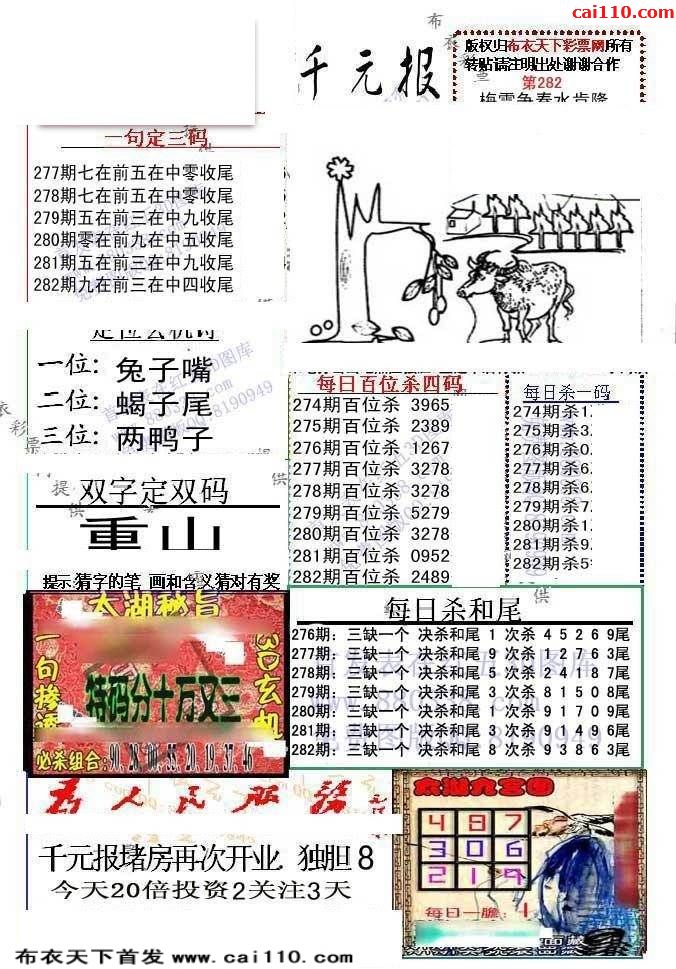 cai110.com
千元报
版权归布衣天下彩票网所有
转贴请注明出处谢谢合作
第282
一句定三码
277期七在前五在中零收尾
278期七在前五在中零收尾
279期五在前三在中九收尾
280期零在前九在中五收尾
281期五在前三在中九收尾
282期九在前三在中四收尾
一位: 兔子嘴
二位: 蝎子尾
三位: 两鸭子
双字定双码
重山
提示:猜字的笔 画和含义猜对有奖
每日百位杀四码
274期百位杀 3965
275期百位杀 2389
276期百位杀 1267
277期百位杀 3278
278期百位杀 3278
279期百位杀 5279
280期百位杀 3278
281期百位杀 0952
282期百位杀 2489
每日杀一码
274期杀1
275期杀3
276期杀0
277期杀6
278期杀6
279期杀7
280期杀1
281期杀9
282期杀5
每日杀和尾
276期: 三缺一个 决杀和尾 1 次杀 4 5 2 6 9尾
277期: 三缺一个 决杀和尾 9 次杀 1 2 7 6 3尾
278期: 三缺一个 决杀和尾 5 次杀 2 4 1 8 7尾
279期: 三缺一个 决杀和尾 3 次杀 8 1 5 0 8尾
280期: 三缺一个 决杀和尾 9 次杀 9 1 7 0 9尾
281期: 三缺一个 决杀和尾 3 次杀 9 1 4 9 6尾
282期: 三缺一个 决杀和尾 8 次杀 9 3 8 6 3尾
太湖秘旨
3D玄机
特码分十万又三
必杀组合: 90,28,00,55,20,19,37,46
为人民服务
千元报堵房再次开业 独胆 8
今天20倍投资2关注3天
太湖九宫图
4 8 7
3 0 6
2 1 9
每日一胆: 1
布衣天下首发 www.cai110.com